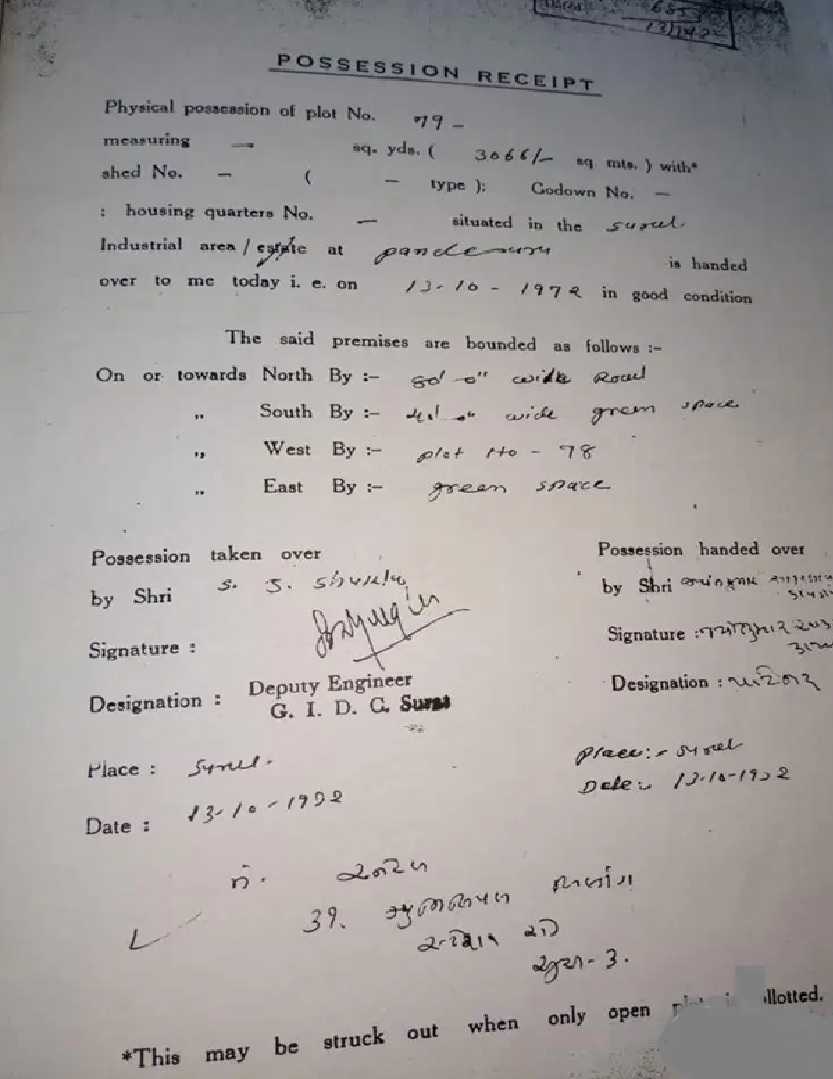 655
POSSESSION RECEIPT
Physical possession of plot No. 79 -
measuring — sq. yds. ( 3066/- sq. mts. ) with*
shed No. — ( — type ); Godown No. —
: housing quarters No. — situated in the Surat
Industrial area / estate at pandesara is handed
over to me today i. e. on 13-10-1972 in good condition
The said premises are bounded as follows :-
On or towards North By :- 80'-0" wide Road
„ South By :- wide green space
„ West By :- plot No - 78
„ East By :- green space
Possession taken over
by Shri S. J. Shukla
Signature :
Designation : Deputy Engineer
G. I. D. C. Surat
Place : Surat.
Date : 13-10-1972
Possession handed over
by Shri
Signature :
Designation : પાર્ટનર
Place :- Surat
Date :- 13-10-1972
39,
સુરત - 3.
*This may be struck out when only open allotted.